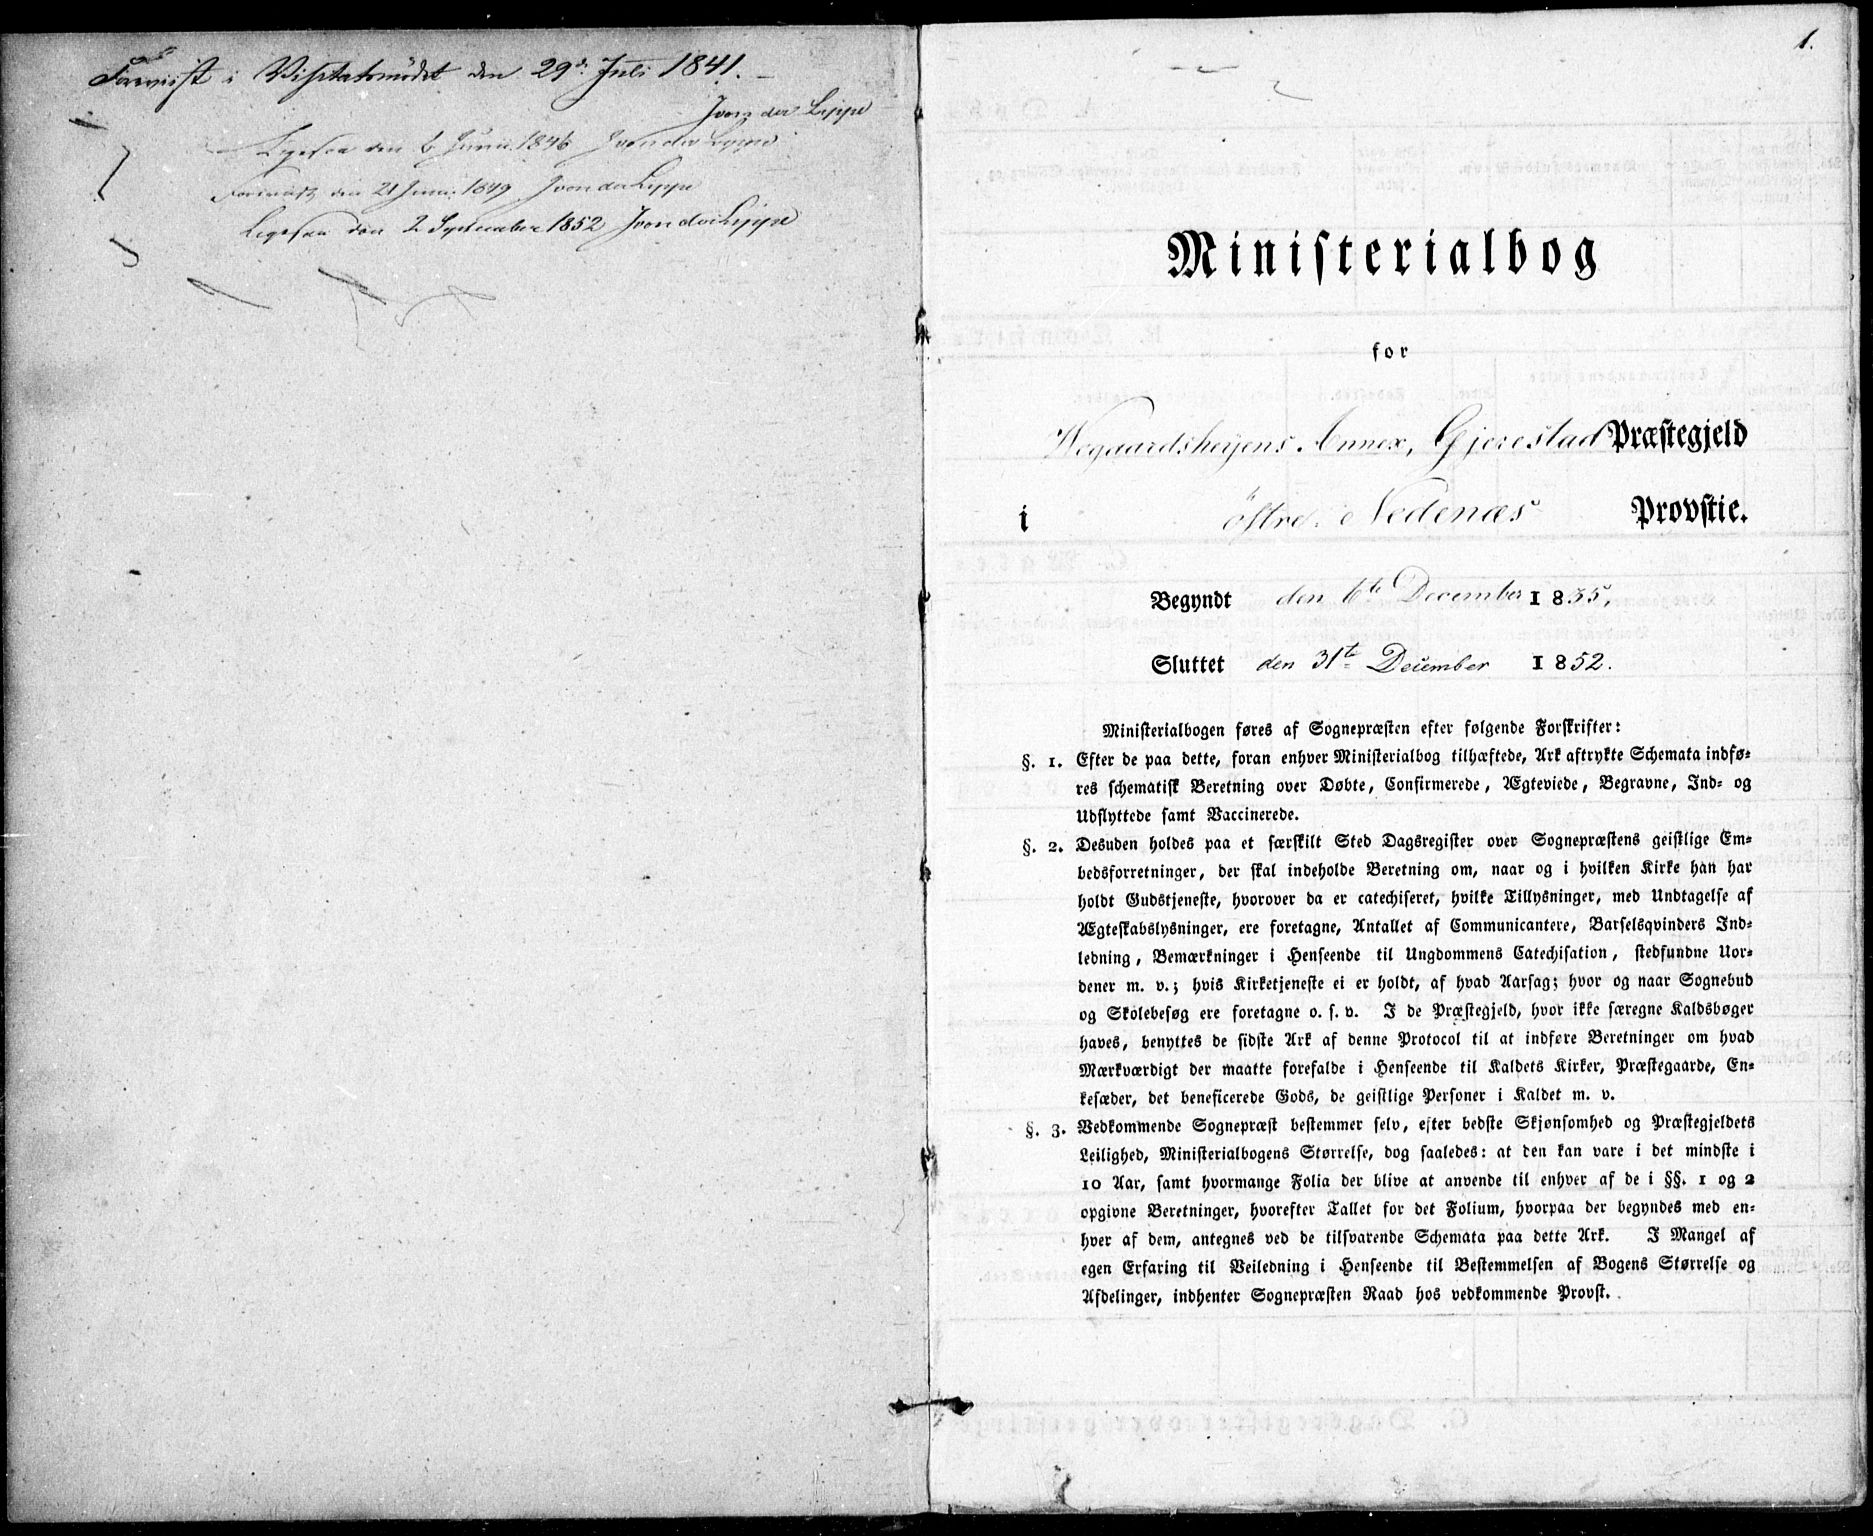 Foreviist i Visitatsmödet den 29de Juli 1841.
J von der Lippe
Ligesaa den 6 Junii 1846 J von der Lippe
Foreviist den 21 Juni 1849 J von der Lippe
Ligesaa den 2 September 1852 J von der Lippe
1.
Ministerialbog
for
Wegaardsheyens Annex, Gjerestad Præstegjeld
i östre Nedenæs Provstie.
Begyndt den 6te December 1835,
Sluttet den 31te December 1852.
Ministerialbogen føres af Sognepræsten efter følgende Forskrifter:
§. 1. Efter de paa dette, foran enhver Ministerialbog tilhæftede, Ark aftrykte Schemata indfø-
res schematisk Beretning over Døbte, Confirmerede, Ægteviede, Begravne, Ind- og
Udflyttede samt Vaccinerede.
§. 2. Desuden holdes paa et særskilt Sted Dagsregister over Sognepræstens geistlige Em-
bedsforretninger, der skal indeholde Beretning om, naar og i hvilken Kirke han har
holdt Gudstjeneste, hvorover da er catechiseret, hvilke Tillysninger, med Undtagelse af
Ægteskabslysninger, ere foretagne, Antallet af Communicantere, Barselsqvinders Ind-
ledning, Bemærkninger i Henseende til Ungdommens Catechisation, stedfundne Uor-
dener m. v.; hvis Kirketjeneste ei er holdt, af hvad Aarsag; hvor og naar Sognebud
og Skolebesøg ere foretagne o. s. v. I de Præstegjeld, hvor ikke særegne Kaldsbøger
haves, benyttes de sidste Ark af denne Protocol til at indføre Beretninger om hvad
Mærkværdigt der maatte forefalde i Henseende til Kaldets Kirker, Præstegaarde, En-
kesæder, det beneficerede Gods, de geistlige Personer i Kaldet m. v.
§. 3. Vedkommende Sognepræst bestemmer selv, efter bedste Skjønsomhed og Præstegjeldets
Leilighed, Ministerialbogens Størrelse, dog saaledes: at den kan vare i det mindste i
10 Aar, samt hvormange Folia der blive at anvende til enhver af de i §§. 1 og 2
opgivne Beretninger, hvorefter Tallet for det Folium, hvorpaa der begyndes med en-
hver af dem, antegnes ved de tilsvarende Schemata paa dette Ark. I Mangel af
egen Erfaring til Veiledning i Henseende til Bestemmelsen af Bogens Størrelse og
Afdelinger, indhenter Sognepræsten Raad hos vedkommende Provst.